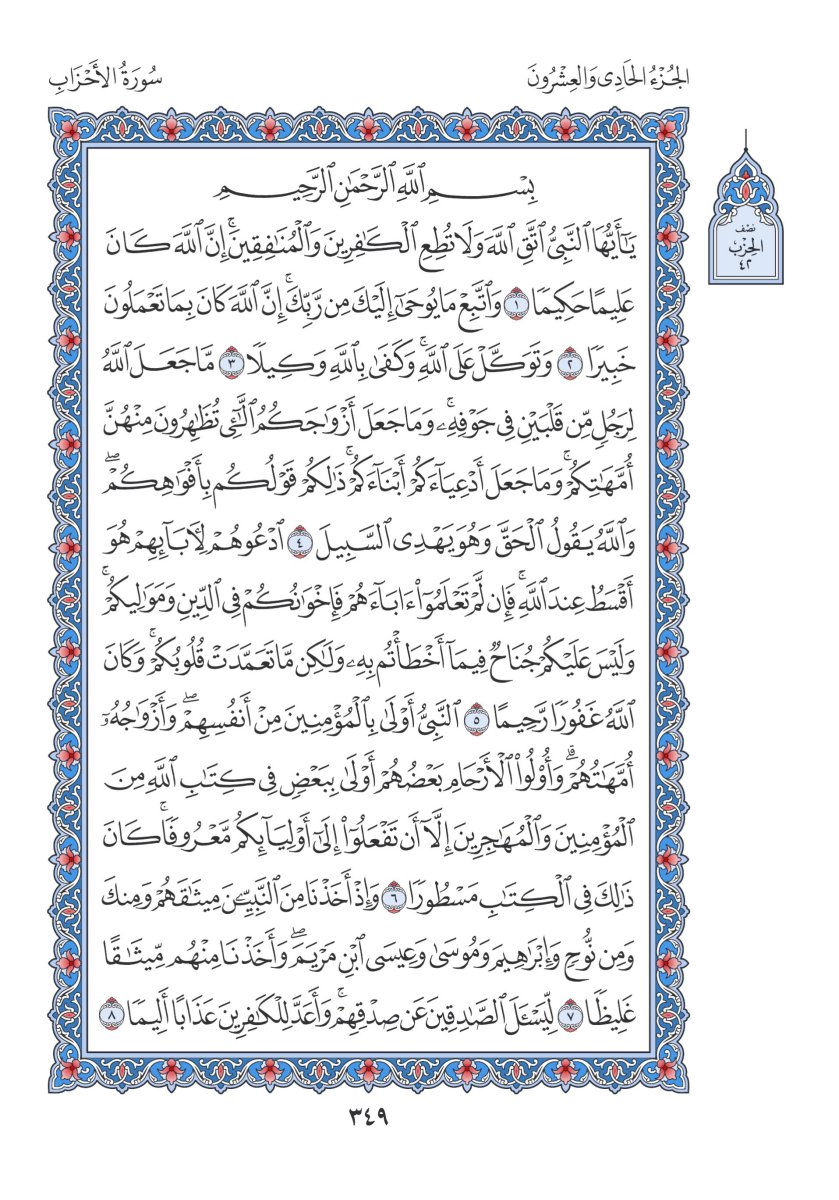 الجُزْءُ الحَادِى وَالعِشْرُونَ
سُورَةُ الأَحْزَابِ
نصْف
الحِزْب
٤٢
بِسْمِ ٱللَّهِ ٱلرَّحْمَٰنِ ٱلرَّحِيمِ
يَٰٓأَيُّهَا ٱلنَّبِيُّ ٱتَّقِ ٱللَّهَ وَلَا تُطِعِ ٱلْكَٰفِرِينَ وَٱلْمُنَٰفِقِينَۚ إِنَّ ٱللَّهَ كَانَ
عَلِيمًا حَكِيمًا ١ وَٱتَّبِعْ مَا يُوحَىٰٓ إِلَيْكَ مِن رَّبِّكَۚ إِنَّ ٱللَّهَ كَانَ بِمَا تَعْمَلُونَ
خَبِيرًا ٢ وَتَوَكَّلْ عَلَى ٱللَّهِۚ وَكَفَىٰ بِٱللَّهِ وَكِيلًا ٣ مَّا جَعَلَ ٱللَّهُ
لِرَجُلٍ مِّن قَلْبَيْنِ فِى جَوْفِهِۦۚ وَمَا جَعَلَ أَزْوَٰجَكُمُ ٱلَّٰٓـِٔى تُظَٰهِرُونَ مِنْهُنَّ
أُمَّهَٰتِكُمْۚ وَمَا جَعَلَ أَدْعِيَآءَكُمْ أَبْنَآءَكُمْۚ ذَٰلِكُمْ قَوْلُكُم بِأَفْوَٰهِكُمْۖ
وَٱللَّهُ يَقُولُ ٱلْحَقَّ وَهُوَ يَهْدِى ٱلسَّبِيلَ ٤ ٱدْعُوهُمْ لِأٓبَآئِهِمْ هُوَ
أَقْسَطُ عِندَ ٱللَّهِۚ فَإِن لَّمْ تَعْلَمُوٓا۟ ءَابَآءَهُمْ فَإِخْوَٰنُكُمْ فِى ٱلدِّينِ وَمَوَٰلِيكُمْۚ
وَلَيْسَ عَلَيْكُمْ جُنَاحٌ فِيمَآ أَخْطَأْتُم بِهِۦ وَلَٰكِن مَّا تَعَمَّدَتْ قُلُوبُكُمْۚ وَكَانَ
ٱللَّهُ غَفُورًا رَّحِيمًا ٥ ٱلنَّبِيُّ أَوْلَىٰ بِٱلْمُؤْمِنِينَ مِنْ أَنفُسِهِمْۖ وَأَزْوَٰجُهُۥٓ
أُمَّهَٰتُهُمْۗ وَأُو۟لُوا۟ ٱلْأَرْحَامِ بَعْضُهُمْ أَوْلَىٰ بِبَعْضٍ فِى كِتَٰبِ ٱللَّهِ مِنَ
ٱلْمُؤْمِنِينَ وَٱلْمُهَٰجِرِينَ إِلَّآ أَن تَفْعَلُوٓا۟ إِلَىٰٓ أَوْلِيَآئِكُم مَّعْرُوفًاۚ كَانَ
ذَٰلِكَ فِى ٱلْكِتَٰبِ مَسْطُورًا ٦ وَإِذْ أَخَذْنَا مِنَ ٱلنَّبِيِّـۧنَ مِيثَٰقَهُمْ وَمِنكَ
وَمِن نُّوحٍ وَإِبْرَٰهِيمَ وَمُوسَىٰ وَعِيسَى ٱبْنِ مَرْيَمَۖ وَأَخَذْنَا مِنْهُم مِّيثَٰقًا
غَلِيظًا ٧ لِّيَسْـَٔلَ ٱلصَّٰدِقِينَ عَن صِدْقِهِمْۚ وَأَعَدَّ لِلْكَٰفِرِينَ عَذَابًا أَلِيمًا ٨
٣٤٩